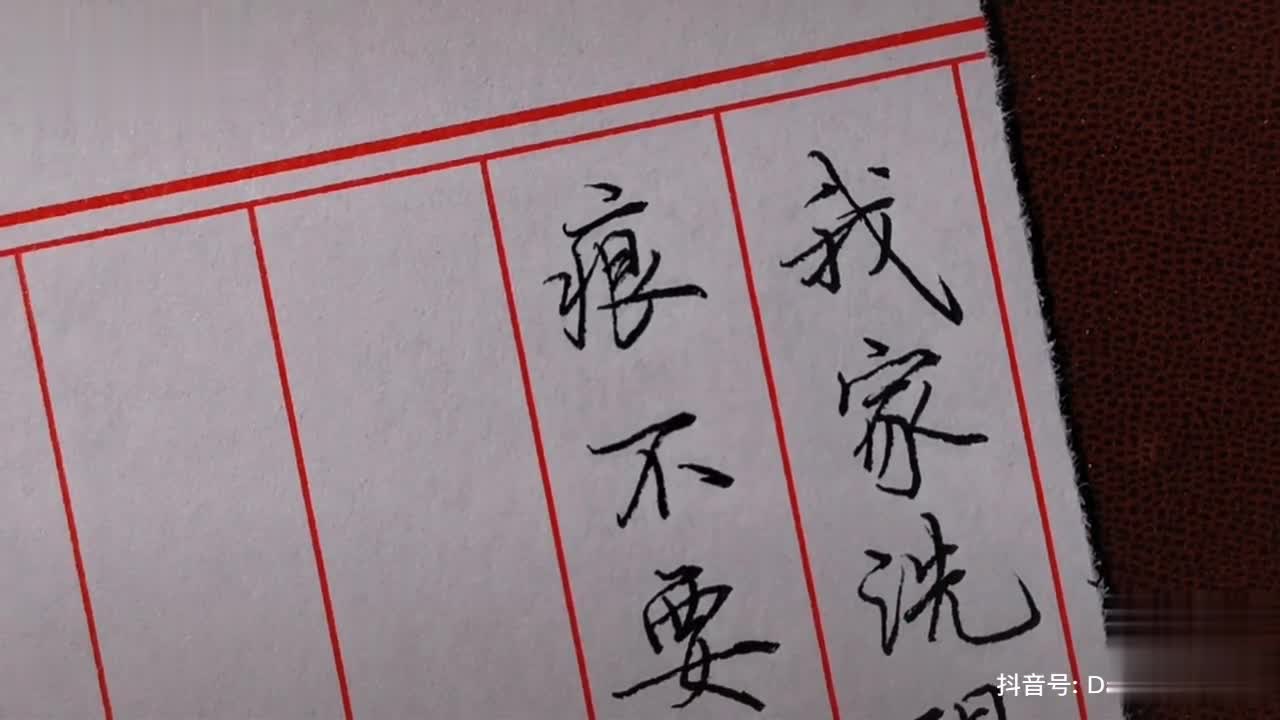 我家洗
痕不要
抖音号: D